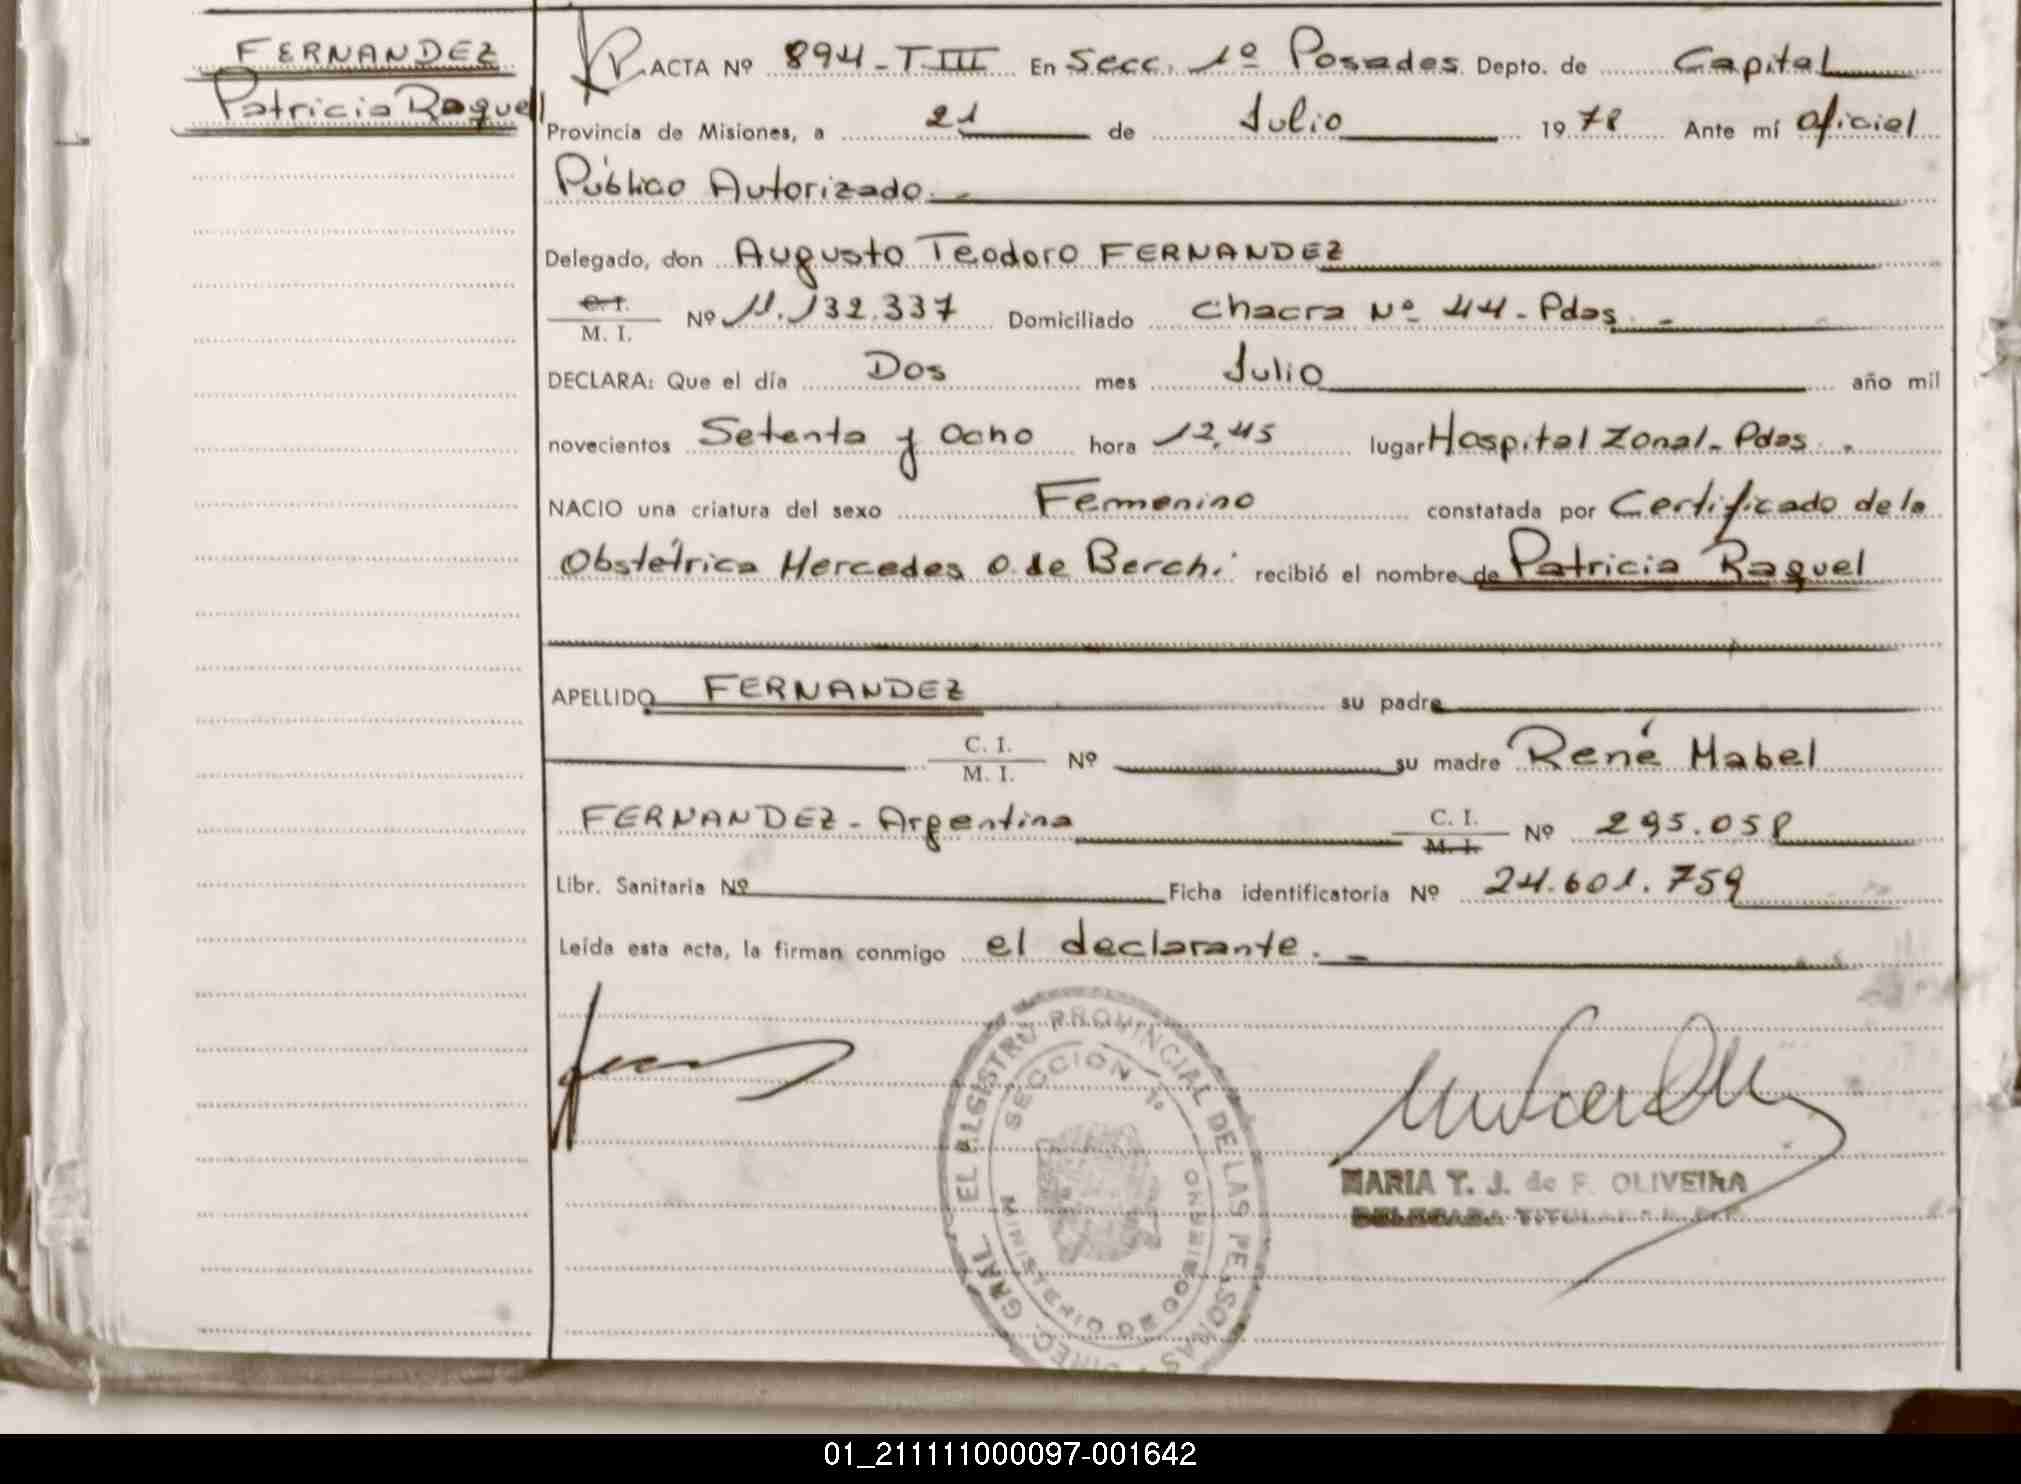 FERNANDEZ
Patricia Raquel
ACTA Nº 894-TIII En Secc. 1º Posadas Depto. de Capital
Provincia de Misiones, a 21 de Julio 1978 Ante mí oficial
Público Autorizado.-
Delegado, don Augusto Teodoro FERNANDEZ
C. I.
M. I. Nº 11.132.337 Domiciliado Chacra Nº 44-Pdas.-
DECLARA: Que el día Dos mes Julio año mil
novecientos Setenta y Ocho hora 12,45 lugar Hospital Zonal-Pdas.-
NACIO una criatura del sexo Femenino constatada por Certificado de la
Obstétrica Mercedes O. de Berchi recibió el nombre de Patricia Raquel
APELLIDO FERNANDEZ su padre
C. I.
M. I. Nº su madre René Mabel
FERNANDEZ-Argentina C. I.
M. I. Nº 295.058
Libr. Sanitaria Nº Ficha identificatoria Nº 24.601.759
Leída esta acta, la firman conmigo el declarante.-
DIREC. GRAL. DEL REGISTRO PROVINCIAL DE LAS PERSONAS
SECCION 1º
MINISTERIO DE GOBIERNO
MARIA T. J. de F. OLIVEIRA
DELEGADA TITULAR
01_211111000097-001642